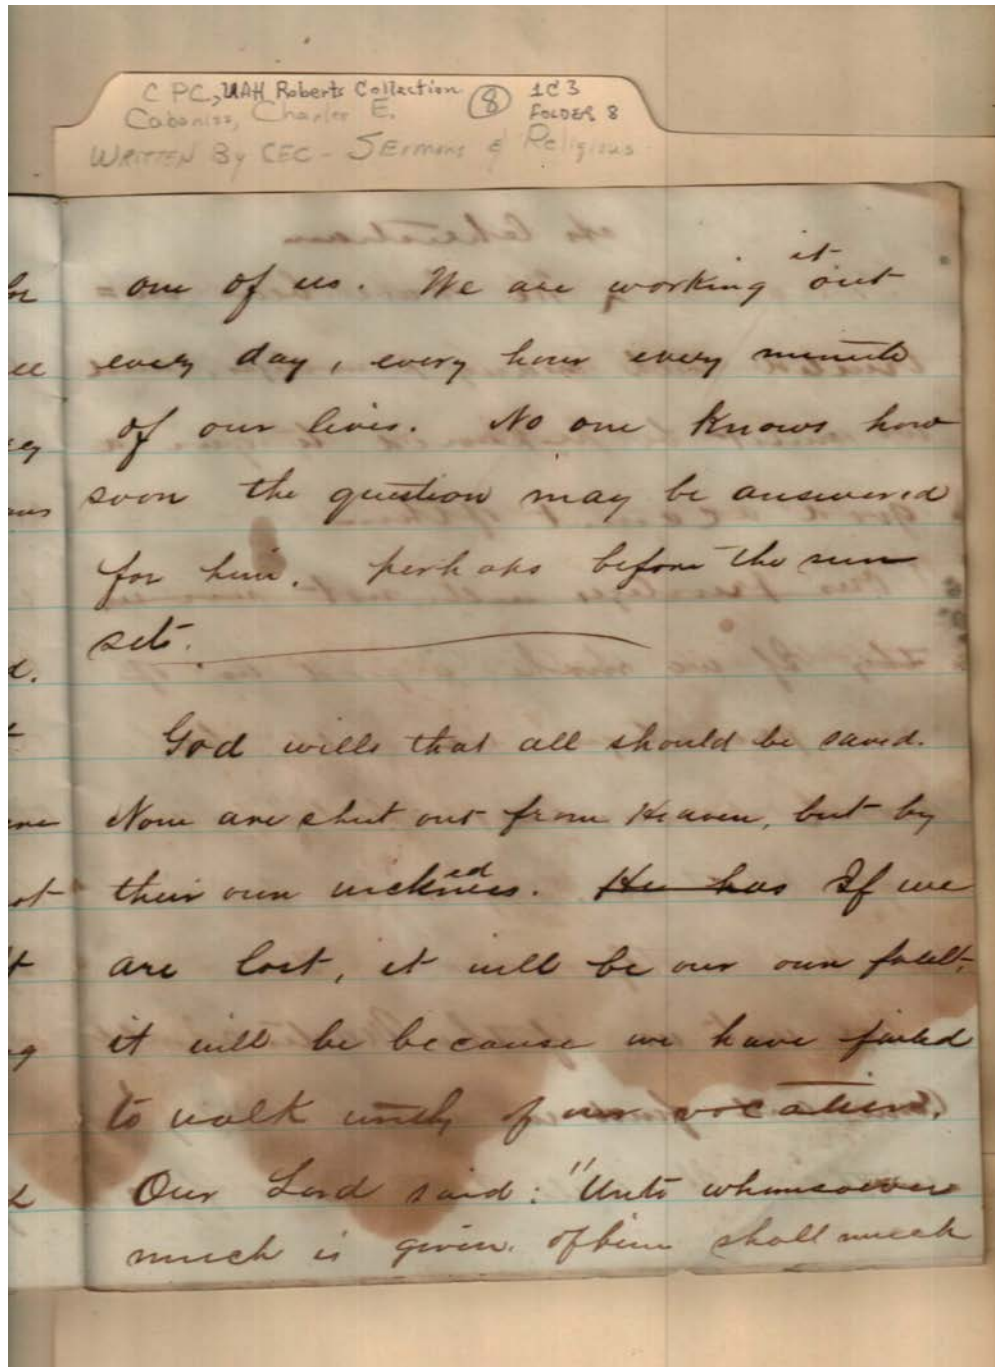 C PC, UAH Roberts Collection
Cabaniss, Charles E.
8
1C3
FOLDER 8
WRITTEN By CEC - SErmons & Religious
it
one of us. We are working out
every day, every hour every minute
of our lives. No one knows how
soon the question may be answered
for him. perhaps before the sun
sets.
God wills that all should be saved.
None are shut out from Heaven, but by
ed
their own wickness. He has If we
are lost, it will be our own fault,
it will be because we have failed
to walk worthy of our vocation.
Our Lord said: "Unto whomsoever
much is given. of him shall much